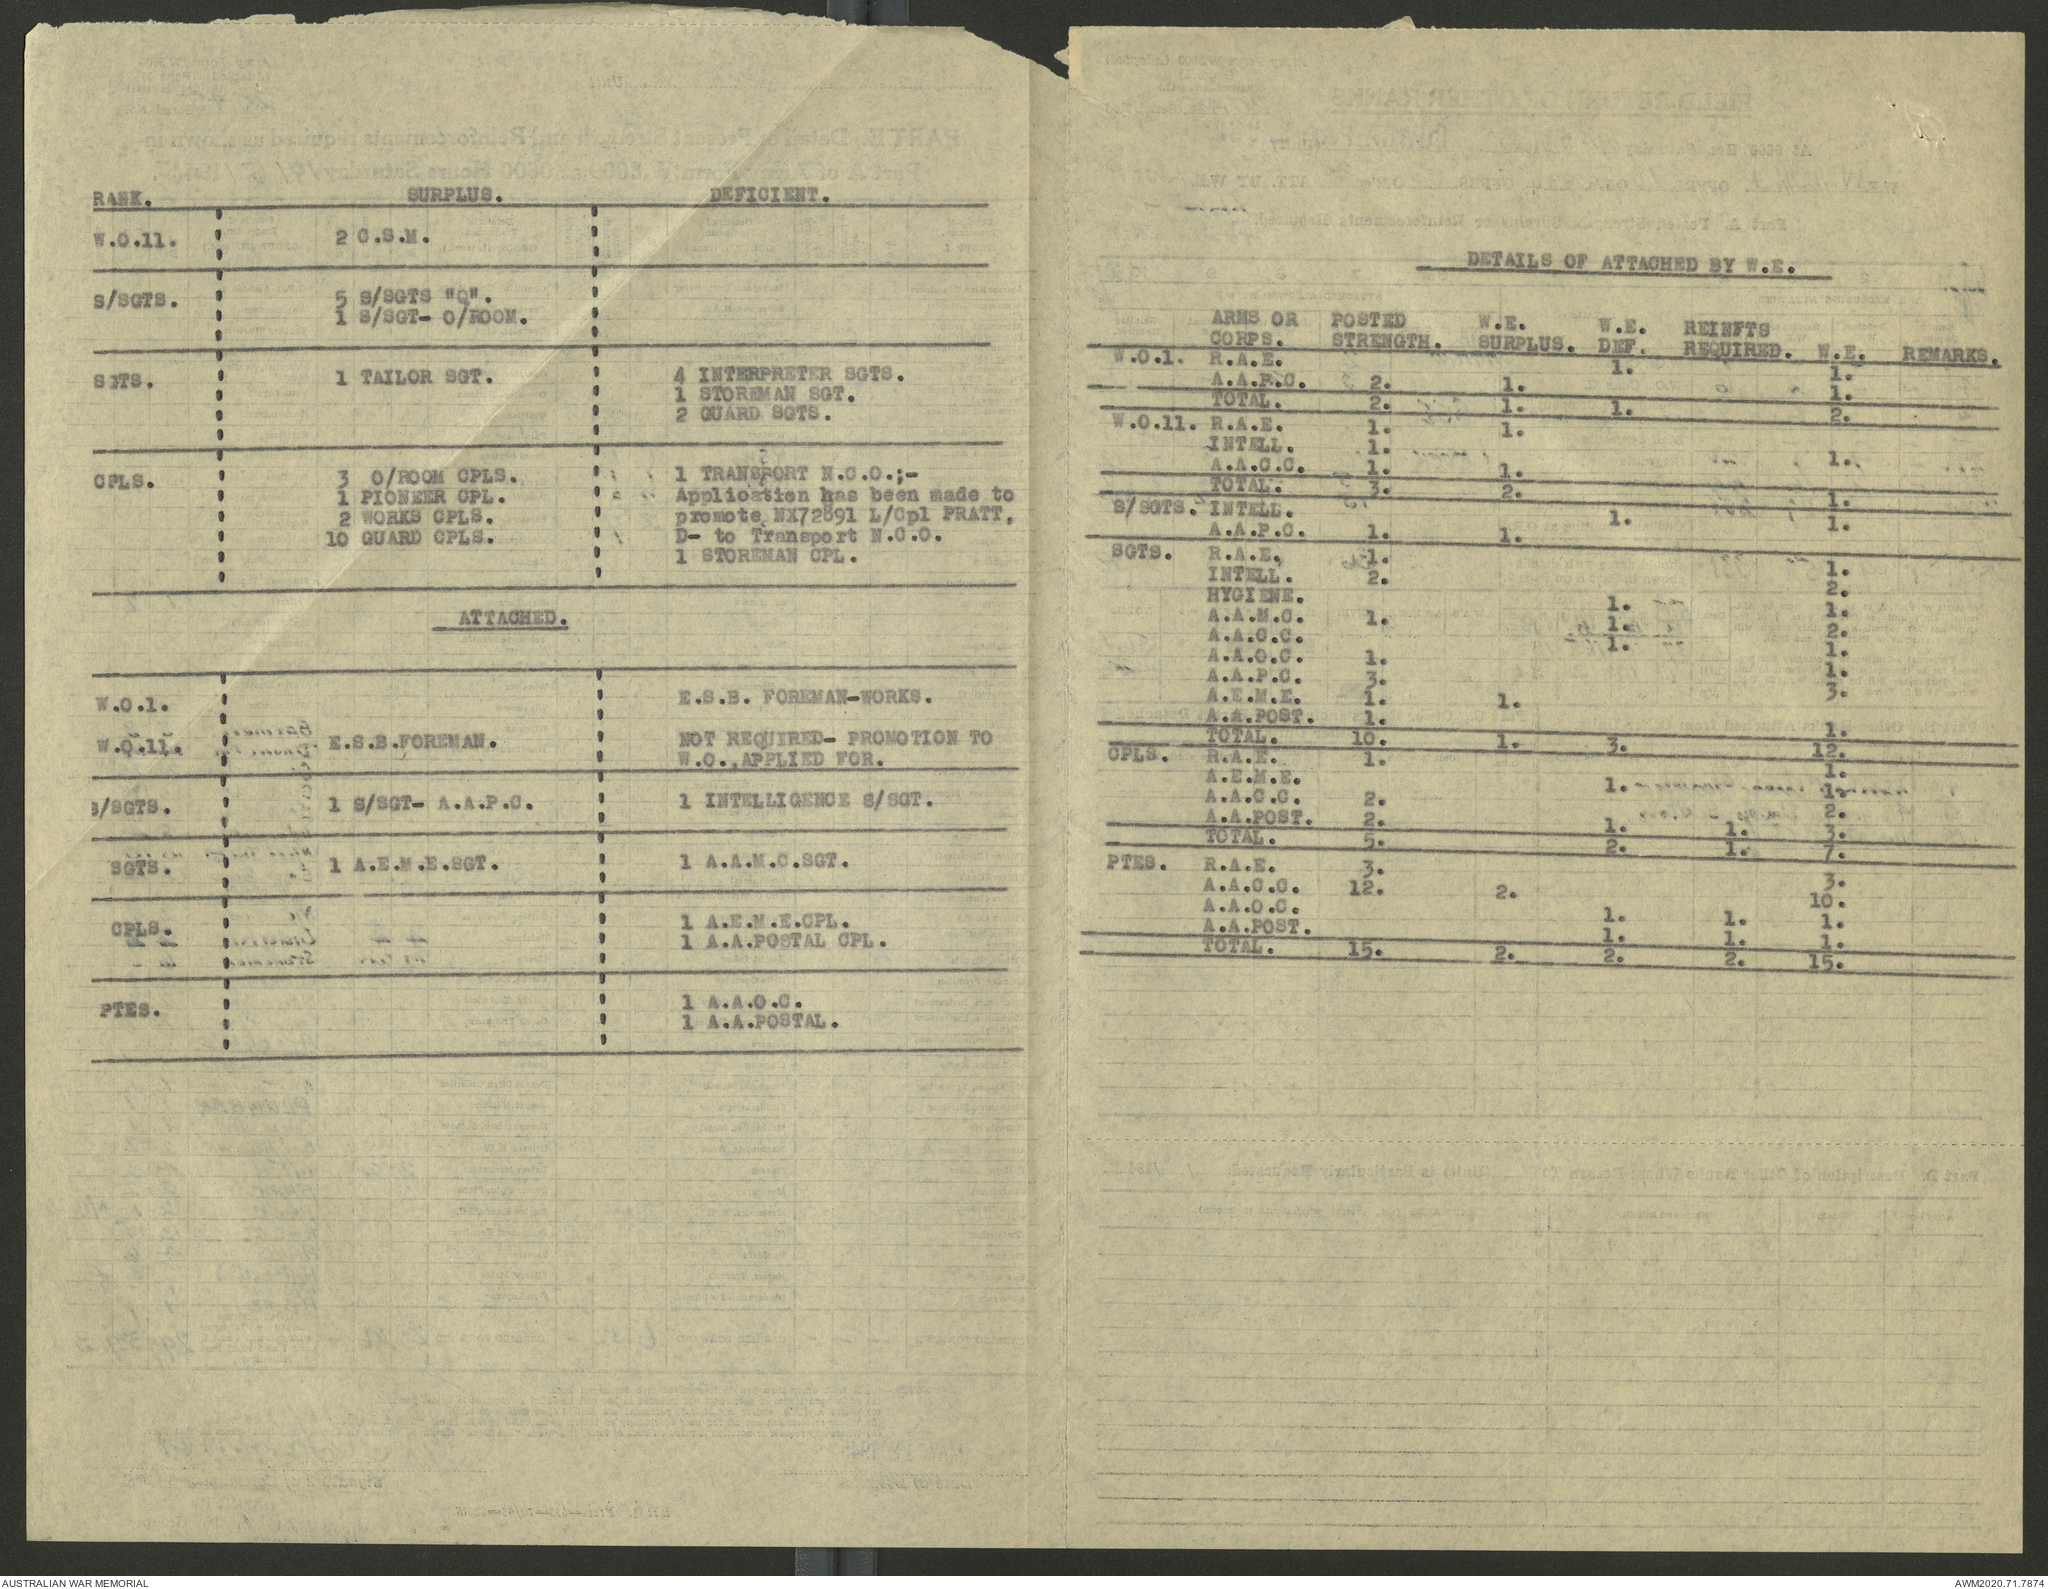 RANK. SURPLUS. DEFICIENT.
W.O.11. 2 C.S.M.
S/SGTS. 5 S/SGTS "Q".
1 S/SGT- O/ROOM.
SGTS. 1 TAILOR SGT. 4 INTERPRETER SGTS.
1 STOREMAN SGT.
2 GUARD SGTS.
CPLS. 3 O/ROOM CPLS. 1 TRANSPORT N.C.O.;-
1 PIONEER CPL. Application has been made to
2 WORKS CPLS. promote NX72891 L/Cpl PRATT,
10 GUARD CPLS. D- to Transport N.C.O.
1 STOREMAN CPL.
ATTACHED.
W.O.1. E.S.B. FOREMAN-WORKS.
W.O.11. E.S.B.FOREMAN. NOT REQUIRED- PROMOTION TO
W.O.,APPLIED FOR.
S/SGTS. 1 S/SGT- A.A.P.C. 1 INTELLIGENCE S/SGT.
SGTS. 1 A.E.M.E.SGT. 1 A.A.M.C.SGT.
CPLS. 1 A.E.M.E.CPL.
1 A.A.POSTAL CPL.
PTES. 1 A.A.O.C.
1 A.A.POSTAL.
DETAILS OF ATTACHED BY W.E.
ARMS OR POSTED W.E. W.E. REINFTS
CORPS. STRENGTH. SURPLUS. DEF. REQUIRED. W.E. REMARKS.
W.O.1. R.A.E. 1. 1.
A.A.P.C. 2. 1. 1.
TOTAL. 2. 1. 1. 2.
W.O.11. R.A.E. 1. 1.
INTELL. 1. 1.
A.A.C.C. 1. 1.
TOTAL. 3. 2. 1.
S/SGTS. INTELL. 1. 1.
A.A.P.C. 1. 1.
SGTS. R.A.E. 1. 1.
INTELL. 2. 2.
HYGIENE. 1. 1.
A.A.M.C. 1. 1. 2.
A.A.C.C. 1. 1.
A.A.O.C. 1. 1.
A.A.P.C. 3. 3.
A.E.M.E. 1. 1.
A.A.POST. 1. 1.
TOTAL. 10. 1. 3. 12.
CPLS. R.A.E. 1. 1.
A.E.M.E. 1. 1.
A.A.C.C. 2. 2.
A.A.POST. 2. 1. 1. 3.
TOTAL. 5. 2. 1. 7.
PTES. R.A.E. 3. 3.
A.A.C.C. 12. 2. 10.
A.A.O.C. 1. 1. 1.
A.A.POST. 1. 1. 1.
TOTAL. 15. 2. 2. 2. 15.
AUSTRALIAN WAR MEMORIAL
AWM2020.71.7874